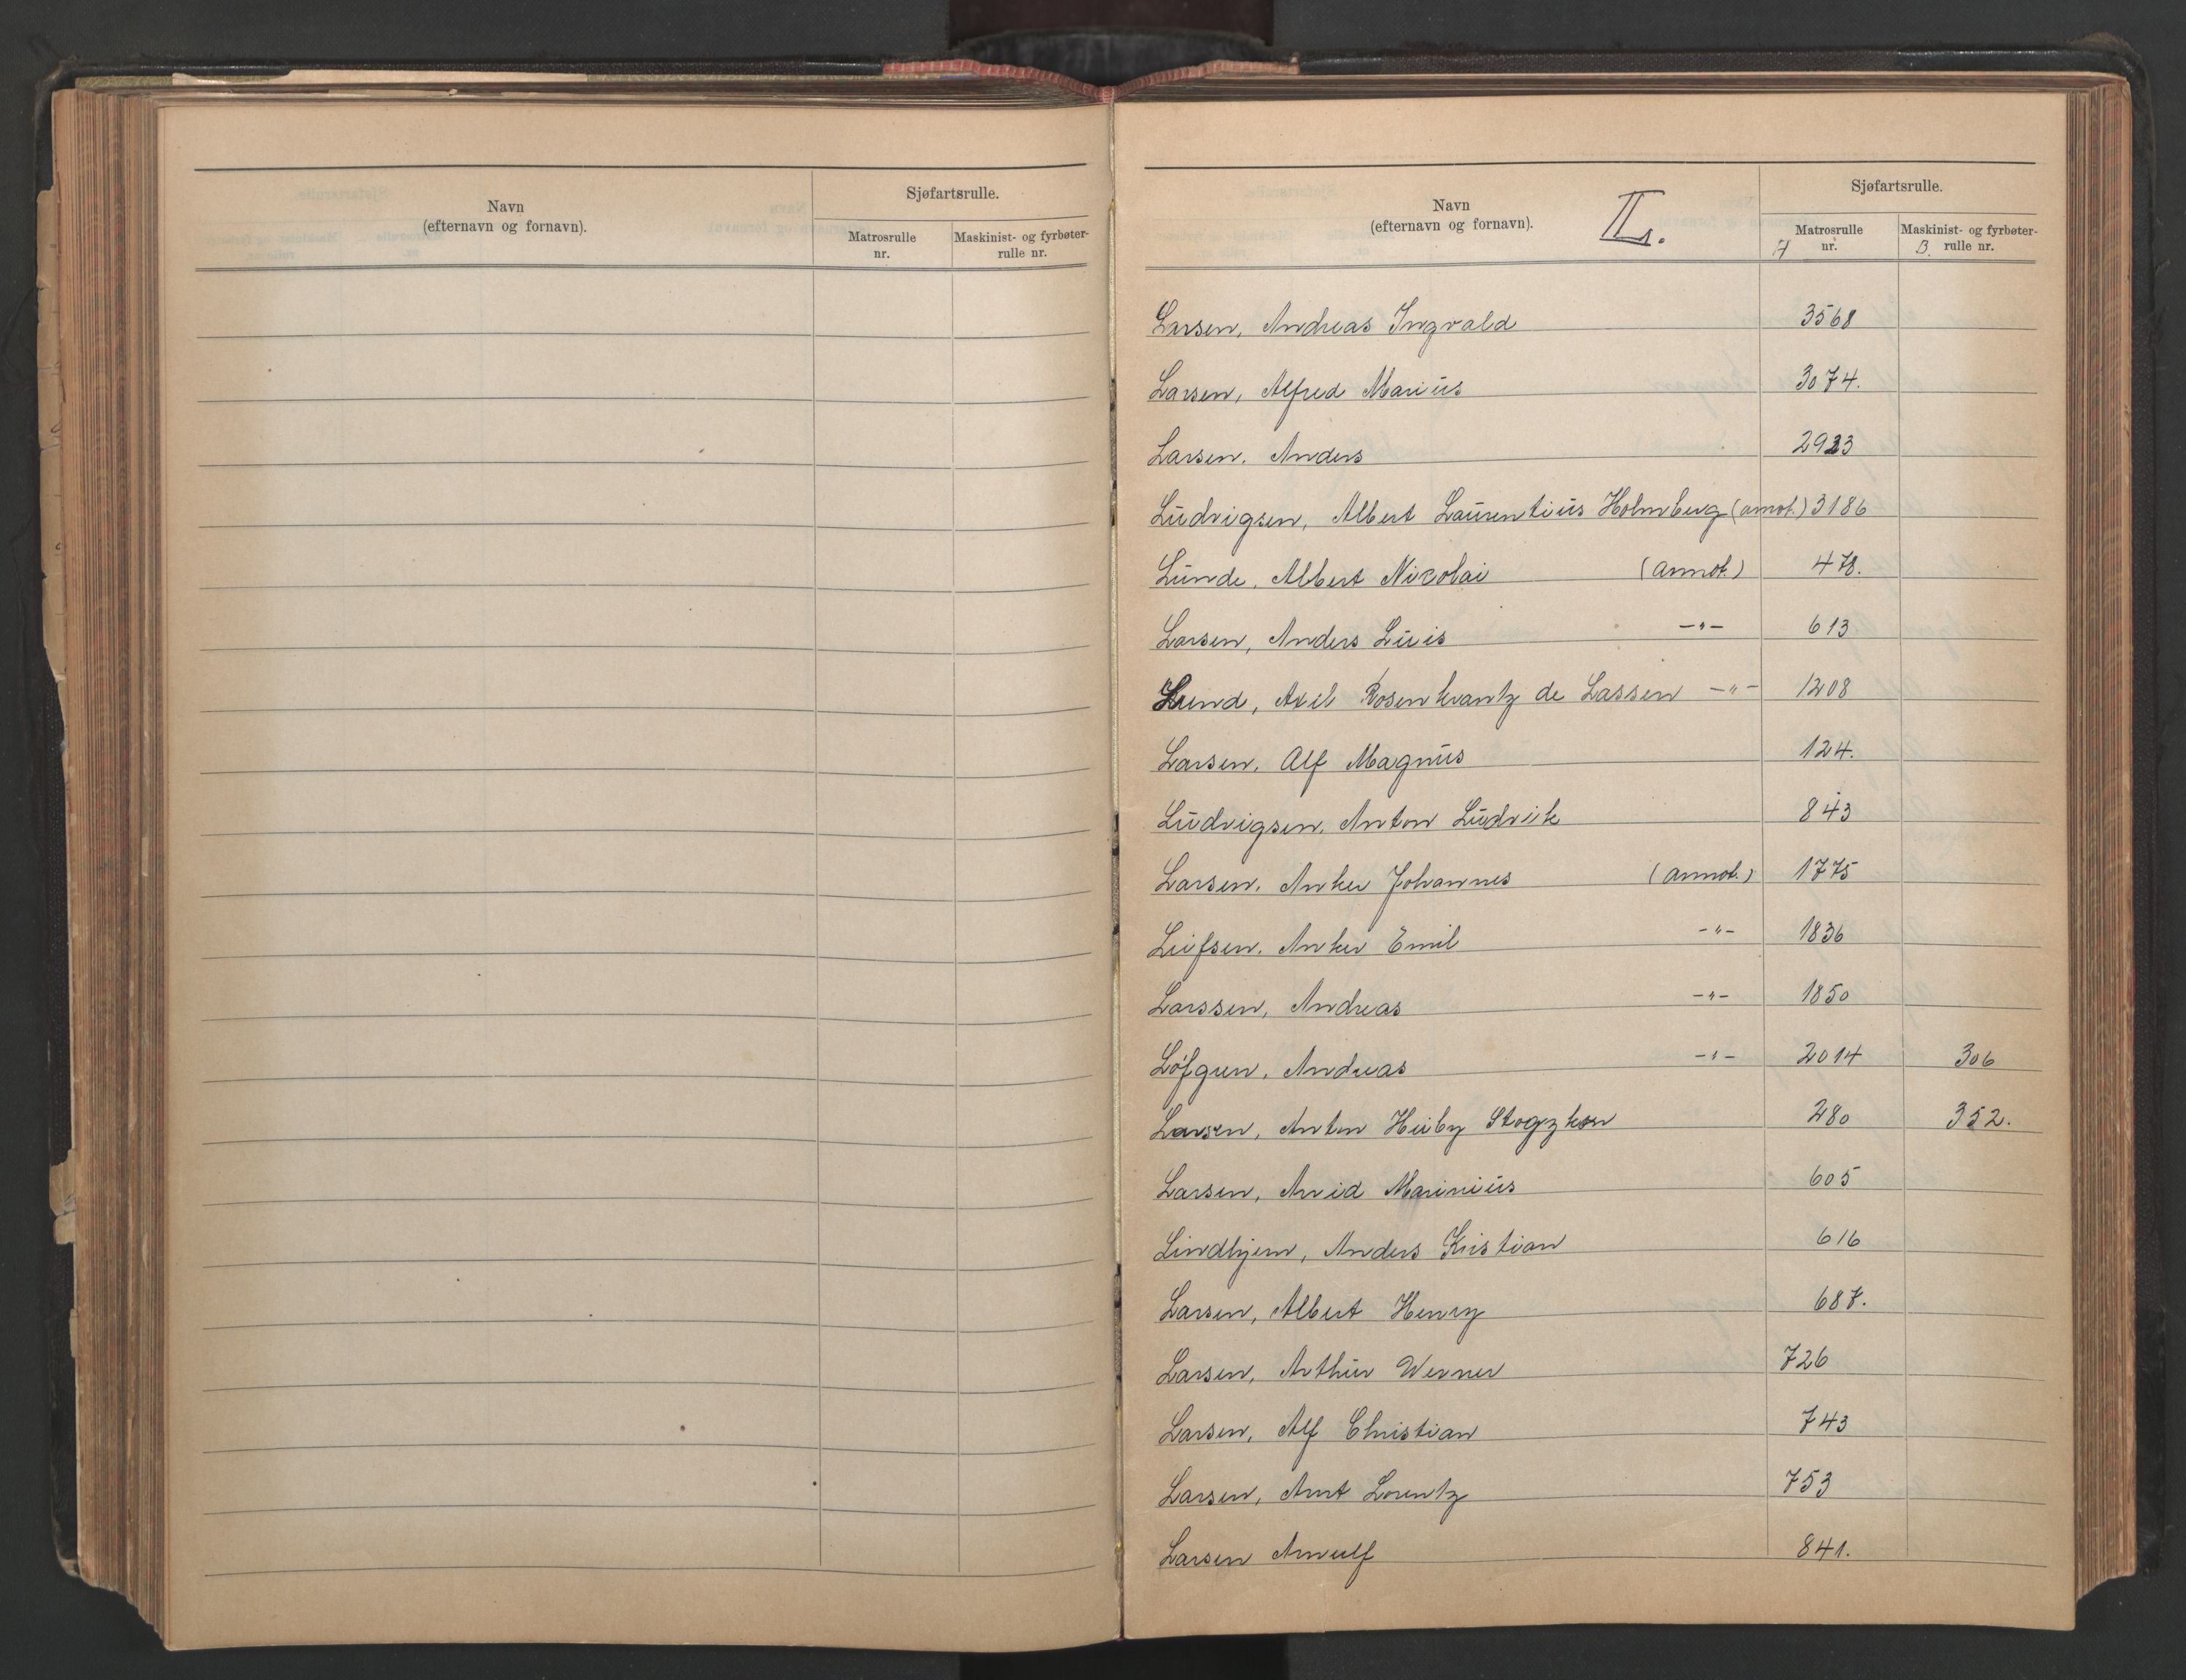 Navn
(efternavn og fornavn).
Sjøfartsrulle.
Matrosrulle
nr.
Maskinist- og fyrbøter-
rulle nr.
Navn
(efternavn og fornavn).
II.
Sjøfartsrulle.
A Matrosrulle
nr.
B. Maskinist- og fyrbøter-
rulle nr.
Larsen, Andreas Ingvald 3568
Larsen, Alfred Marius 3074.
Larsen. Anders 2923
Ludvigsen, Albert Laurentius Holmberg (annot.) 3186
Lunde, Albert Nicolai (annot.) 478.
Larsen, Anders Luis -"- 613
Lund, Axel Rosenkrantz de Lassen -"- 1208
Larsen, Alf Magnus 124.
Ludvigsen, Anton Ludvik 843
Larsen, Anker Johannes (annot.) 1775
Leifsen. Anker Emil -"- 1836
Larssen, Andreas -"- 1850
Løfgren, Andreas -"- 2014 306
Larsen, Anton Heiby 280 352.
Larsen, Arvid Marinius 605
Lindhjem, Anders Kristian 616
Larsen, Albert Henry 687.
Larsen, Arthur Werner 726
Larsen, Alf Christian 743
Larsen, Arnt Lorentz 753
Larsen Arnulf 841.